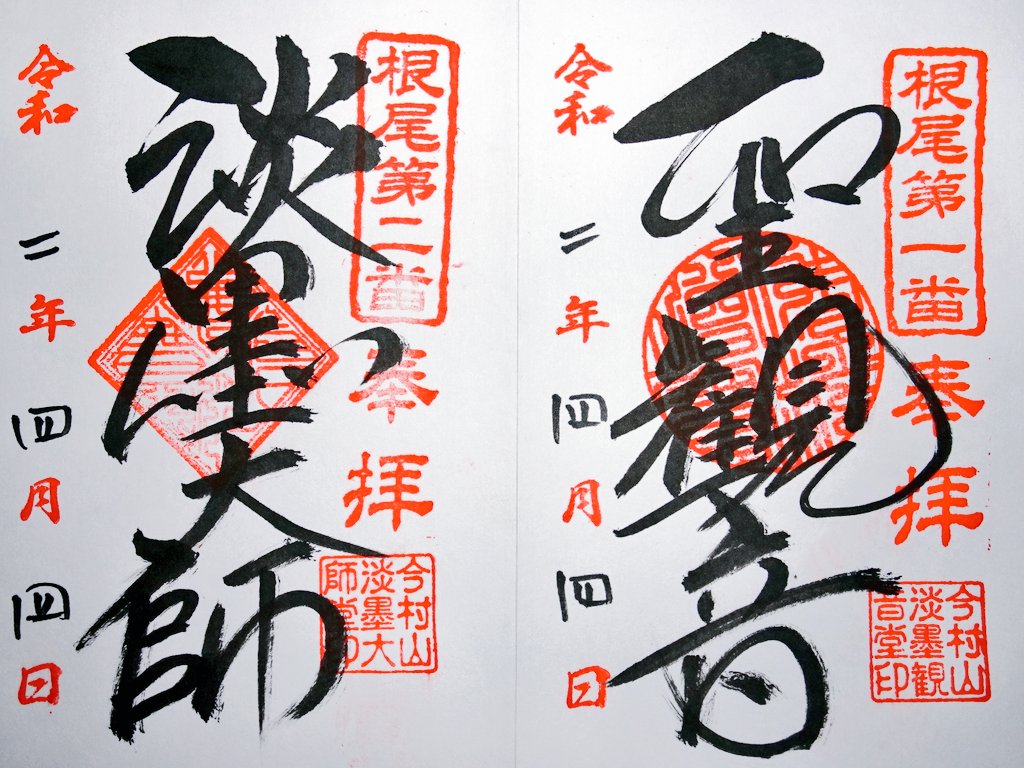 根尾第一番
奉拝
今村山
淡墨観
音堂印
聖観音
令和二年四月四日
根尾第二番
奉拝
今村山
淡墨大
師堂印
淡墨大師
令和二年四月四日